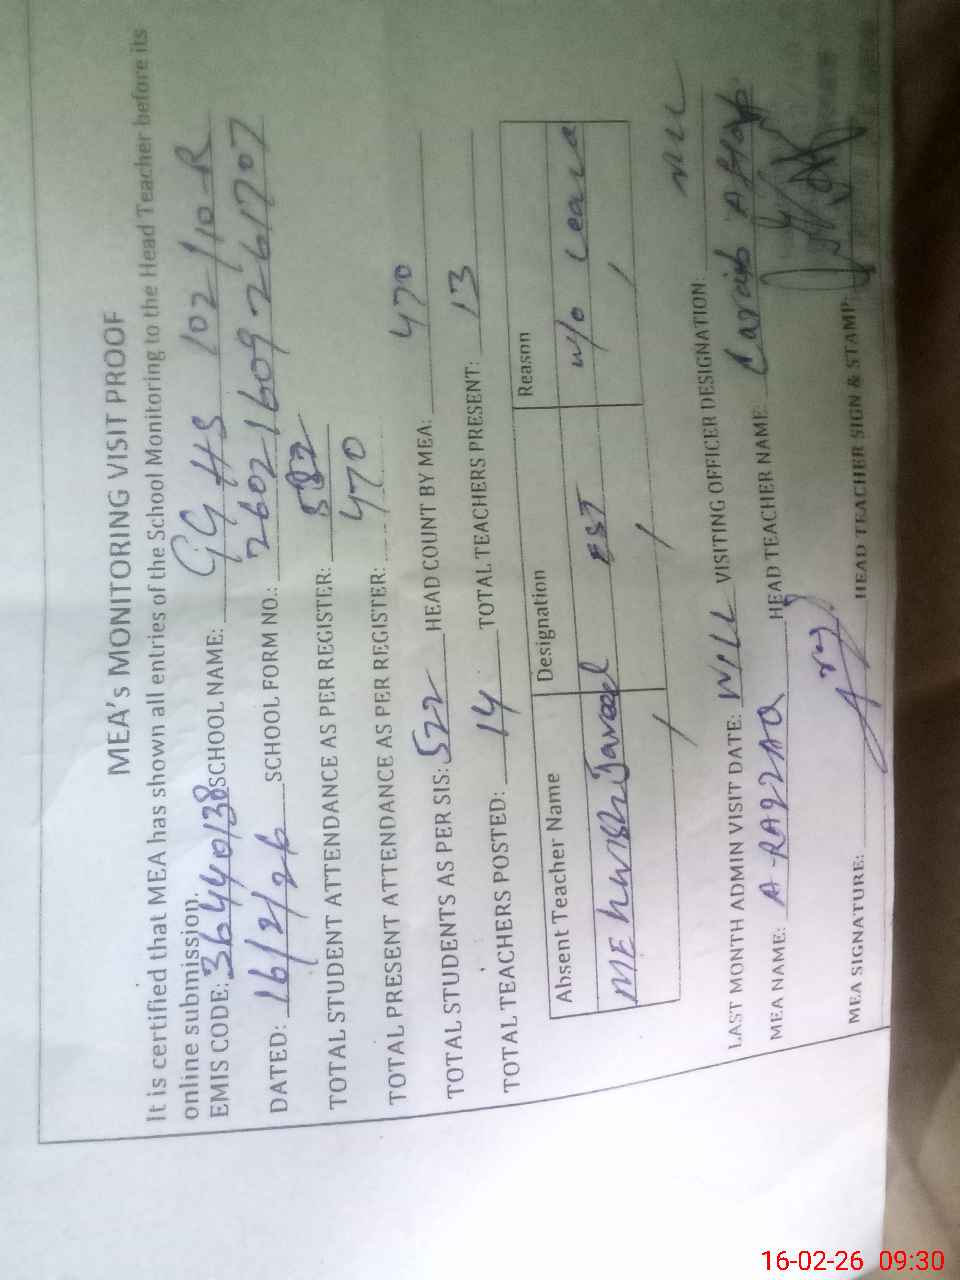 MEA's MONITORING VISIT PROOF
It is certified that MEA has shown all entries of the School Monitoring to the Head Teacher before its
online submission.
EMIS CODE: 36440138 SCHOOL NAME: GGHS 102/10-R
DATED: 16/2/26 SCHOOL FORM NO.: 26021609-261707
TOTAL STUDENT ATTENDANCE AS PER REGISTER: 582
TOTAL PRESENT ATTENDANCE AS PER REGISTER: 470
TOTAL STUDENTS AS PER SIS: 522 HEAD COUNT BY MEA: 470
TOTAL TEACHERS POSTED: 14 TOTAL TEACHERS PRESENT: 13
Absent Teacher Name Designation Reason
Javeed EST w/o Leave
LAST MONTH ADMIN VISIT DATE: NILL VISITING OFFICER DESIGNATION: NILL
MEA NAME: A-RAZZAQ HEAD TEACHER NAME: Laraib Aftab
MEA SIGNATURE: HEAD TEACHER SIGN & STAMP:
16-02-26 09:30